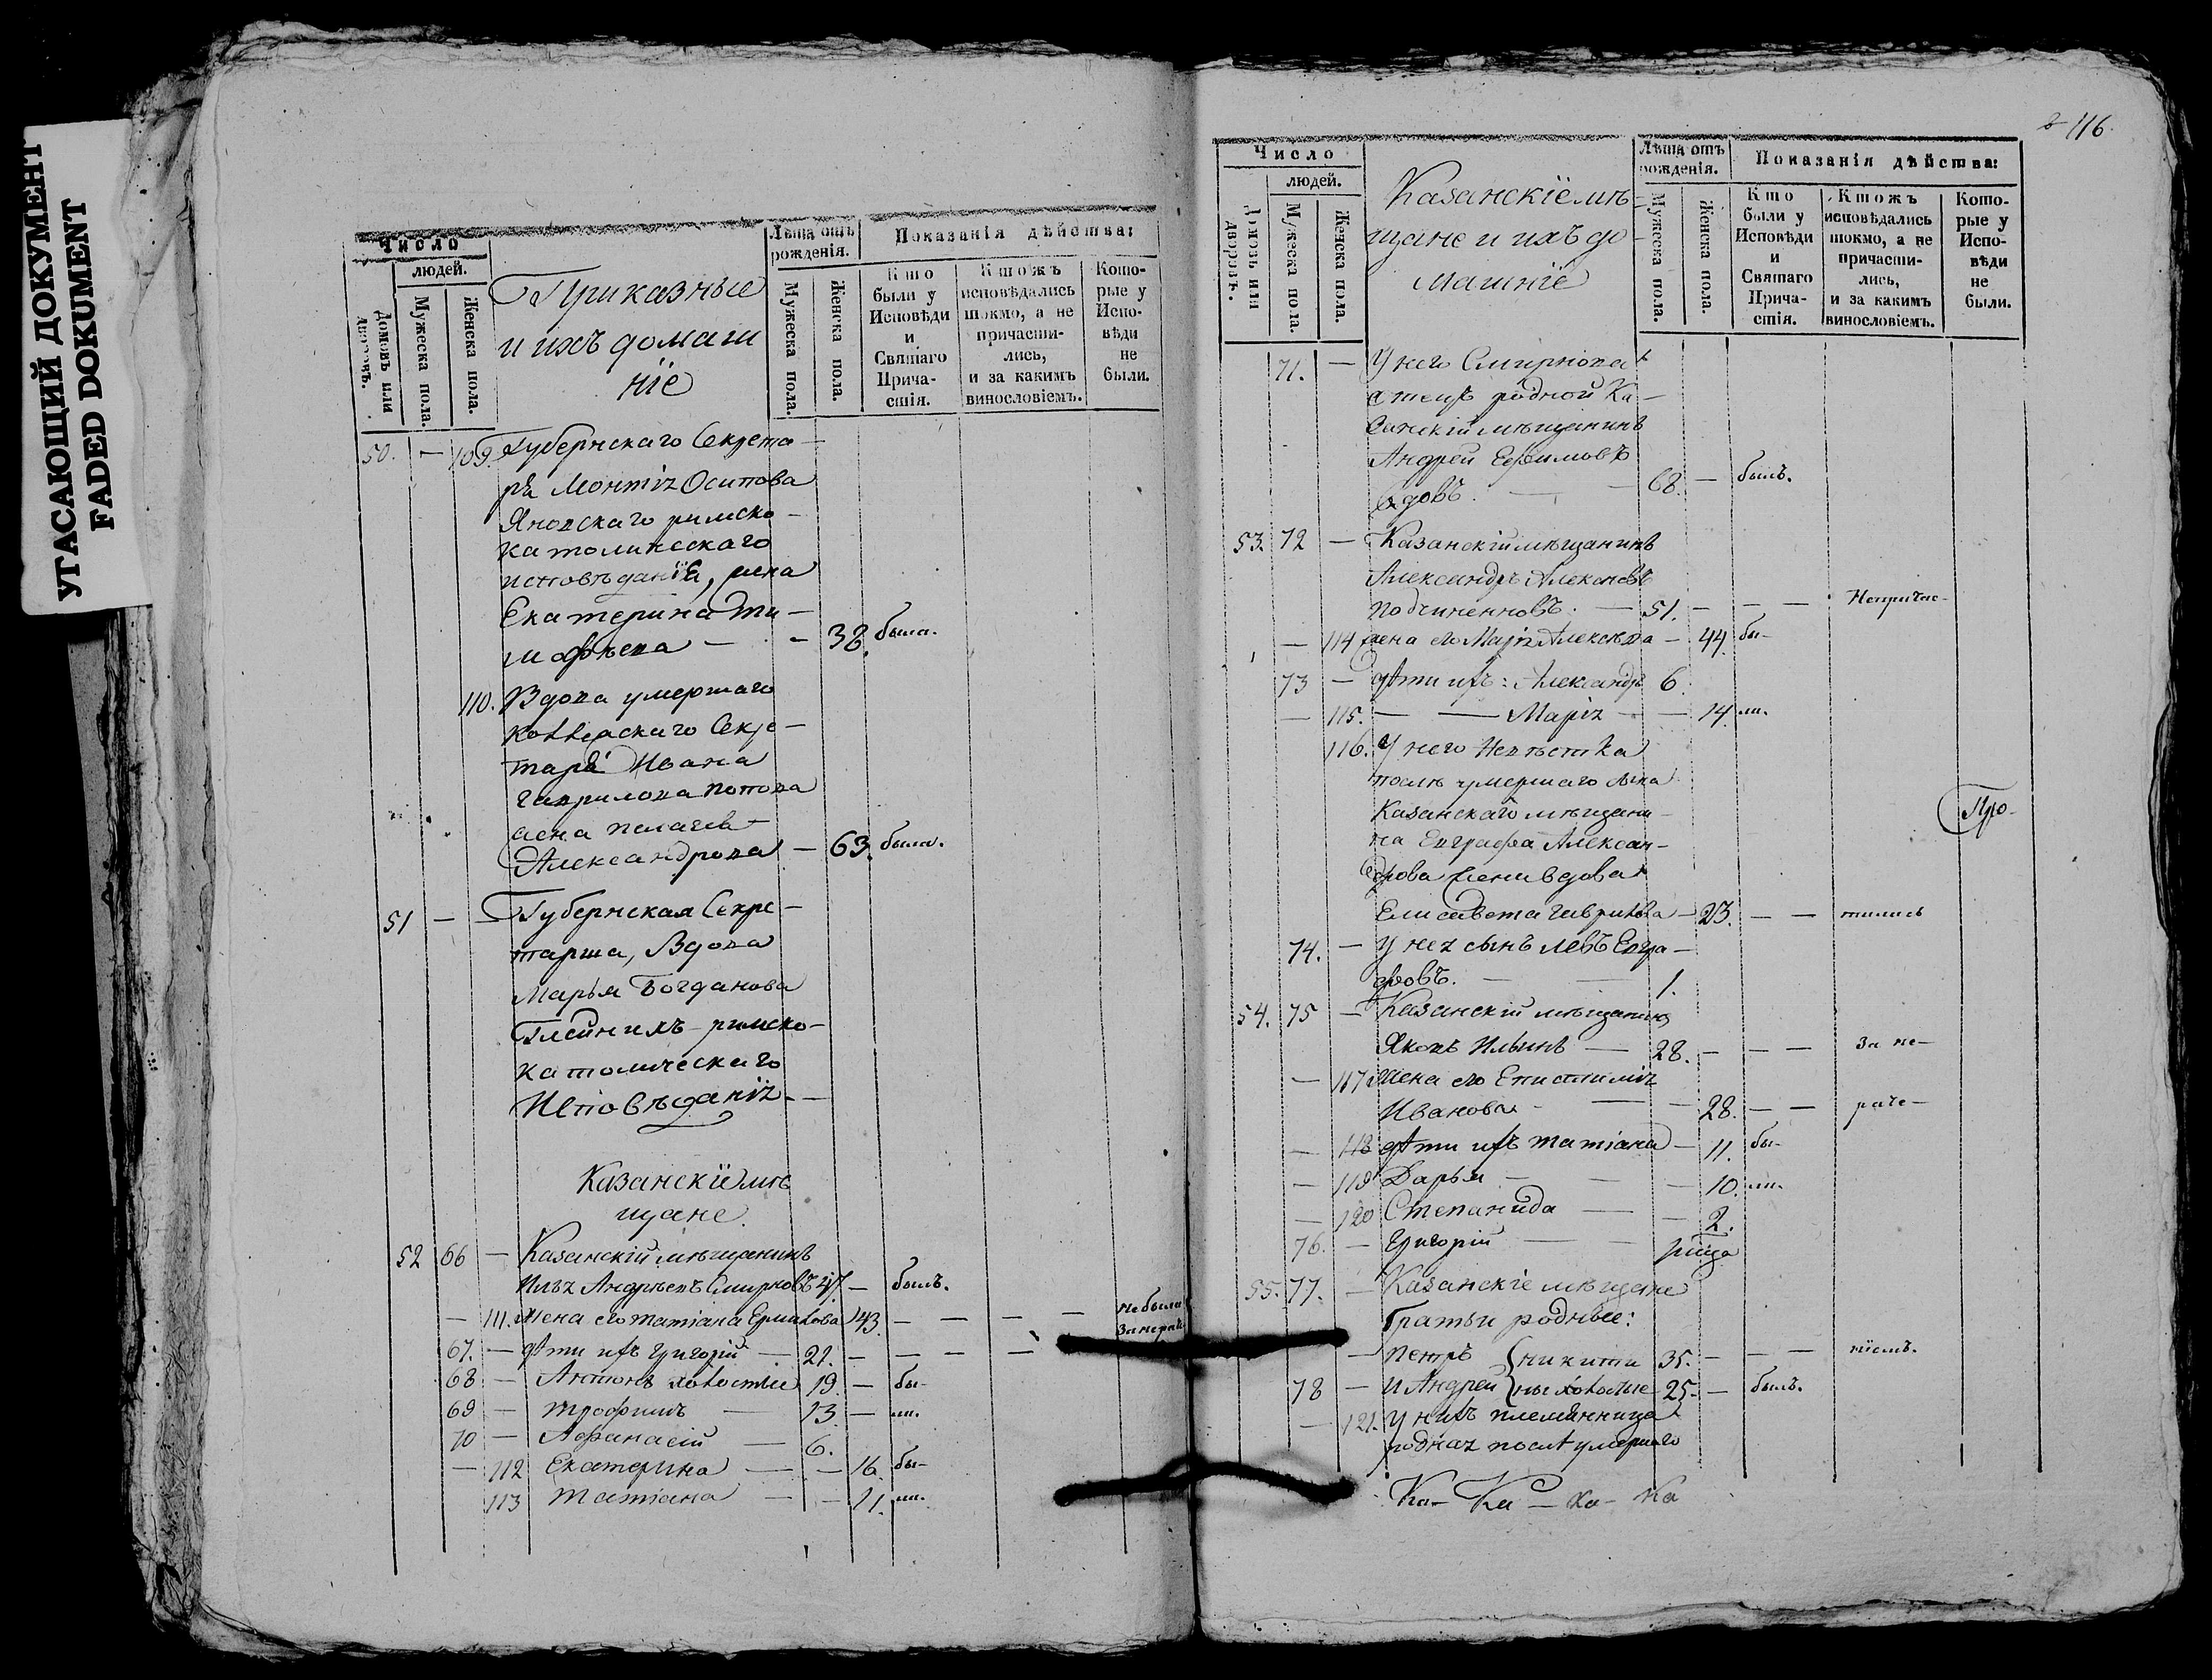 УГАСАЮЩИЙ ДОКУМЕНТ
FADED DOKUMENT
Число
людей.
Домовъ или дворовъ.
Мужеска пола.
Женска пола.
Приказные
и ихъ домаш
ніе
Лѣта отъ рожденія.
Мужеска пола.
Женска пола.
Показанія дѣйства:
Кто были у Исповѣди и Святаго Причастія.
Ктожъ исповѣдались токмо, а не причастились, и за какимъ винословіемъ.
Которые у Исповѣди не были.
50. — 109. Губернскаго Секрета-
ря Осипова
Яновскаго римско-
католическаго
исповѣданія, жена
Екатерина Ти-
мофѣева — - 38. была.
110. Вдова умершаго
Коллежскаго Секре-
таря Ивана
Гаврилова Попова
жена Пелагея
Александрова — 63. была.
51 — — Губернская Секре-
тарша, Вдова
Марья Богданова
римско-
католическаго
Исповѣданія. —
Казанскіе мѣ
щане.
52 66 — Казанскій мѣщанинъ
Илья Андрѣевъ Смирновъ 47. — былъ.
— 111. Жена его Татіана Ермилова 43. — — — не были
67. — дѣти ихъ Григорій — 21. — — — — за нерач
68 — Антонъ холостые 19. — бы-
69 — Трофимъ — 13 — ли.
70 — Афанасій — 6.
— 112 Екатерина — — 16. бы-
113 Татіана — — 11. ли.
116.
Число
людей.
Домовъ или дворовъ.
Мужеска пола.
Женска пола.
Казанскіе мѣ-
щане и ихъ до-
машніе
Лѣта отъ рожденія.
Мужеска пола.
Женска пола.
Показанія дѣйства:
Кто были у Исповѣди и Святаго Причастія.
Ктожъ исповѣдались токмо, а не причастились, и за какимъ винословіемъ.
Которые у Исповѣди не были.
71. — У него Смирнова
отецъ родной Ка-
занскій мѣщанинъ
Андрей Ефимовъ
вдовъ. — — 68. — былъ.
53. 72 — Казанскій мѣщанинъ
Александръ
Подчиненновъ. — 51. — — — Непричас-
— 114 жена его Марія Алексѣева — 44. бы-
73 — дѣти ихъ: Александръ 6.
— 115. — — Марія — — 14. ли.
116. У него Невѣстка
послѣ умершаго сына
Казанскаго мѣщани-
на Евграфа Алексан-
дрова жена вдова
Елисавета Гаврилова — 23. — — тились
74. — У нея сынъ Левъ Евгра-
фовъ. — — 1.
54. 75 — Казанскій мѣщанинъ
Яковъ Ильинъ — 28. — — — За не-
— 117 Жена его Епистимія
Иванова — — — 28. — — раче-
— 118 дѣти ихъ Татіана — 11. бы-
— 119 Дарья — — — 10. ли.
— 120 Степанида — — 2.
76. — Григорій — —
55. 77. — Казанскіе мѣщане
братья родные:
— Петръ {Никити 35. — — — ніемъ.
78 — и Андрей {ны холостые 25. — былъ.
— 121. У нихъ племянница
родная послѣ умершаго
Про-
Ка- Ка — ка- ка